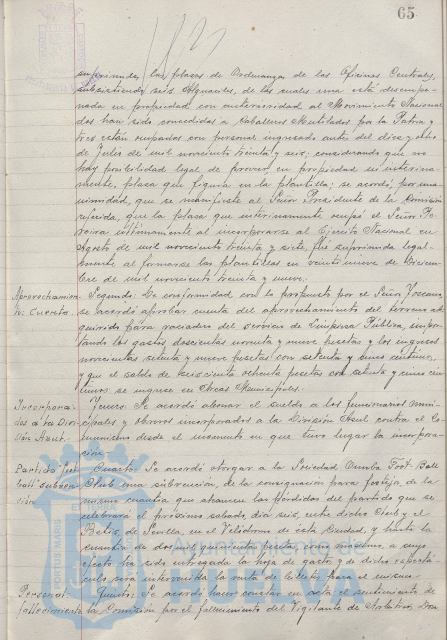 65
suprimidas las plazas de Ordenanzas de las Oficinas Centrales,
subsistiendo seis Alguaciles, de las cuales una está desempe-
ñada en propiedad con anterioridad al Movimiento Nacional
dos han sido concedidas a Caballeros Mutilados por la Patria y
tres están ocupadas con personal ingresado antes del diez y ocho
de Julio de mil novecientos treinta y seis; considerando que no
hay posibilidad legal de proveer, en propiedad ni interina-
mente, plaza que figura en la plantilla; se acordó, por una-
nimidad, que se manifieste al Señor Presidente de la Comisión
referida, que la plaza que interinamente ocupó el Señor
últimamente al incorporarse al Ejército Nacional en
Agosto de mil novecientos treinta y siete, fué suprimida legal-
mente al formarse las plantillas en veintinueve de Diciem-
bre de mil novecientos treinta y nueve.
Aprovechamien-
to: Cuenta.
Segundo: De conformidad con lo propuesto por el Señor
se acordó aprobar cuenta del aprovechamiento del terreno ad-
quirido para vaciadero del servicio de Limpieza Pública, impor-
tando los gastos, doscientas noventa y nueve pesetas y los ingresos
novecientas setenta y nueve pesetas con setenta y cinco céntimos,
y que el saldo de seiscientas ochenta pesetas con setenta y cinco cén-
timos se ingrese en Arcas Municipales.
Incorpora-
dos a la Divi-
sión Azul.
Se acordó abonar el sueldo a los funcionarios muni-
cipales y obreros incorporados a la División Azul contra el Co-
munismo desde el momento en que tuvo lugar la incorpora-
ción.
Partido foot-
ball: subven-
ción
Cuarto: Se acordó otorgar a la Sociedad Onuba Foot-Ball
Club una subvención, de la consignación para festejos, de la
misma cuantía que alcancen las pérdidas del partido que se
celebrará el próximo sábado, día seis, entre dicho Club y el
Betis, de Sevilla, en el Velódromo de ésta Ciudad, y hasta la
cuantía de dos mil quinientas pesetas, como máximo, a cuyo
efecto ha sido entregada la hoja de gastos y de dicho espectá-
culo será intervenida la venta de billetes para el mismo.
Personal:
fallecimiento
Quinto: Se acordó hacer constar en acta el sentimiento de
la Comisión por el fallecimiento del Vigilante de Arbitrios, Don
Ayuntamiento de
PORTUS MARIS